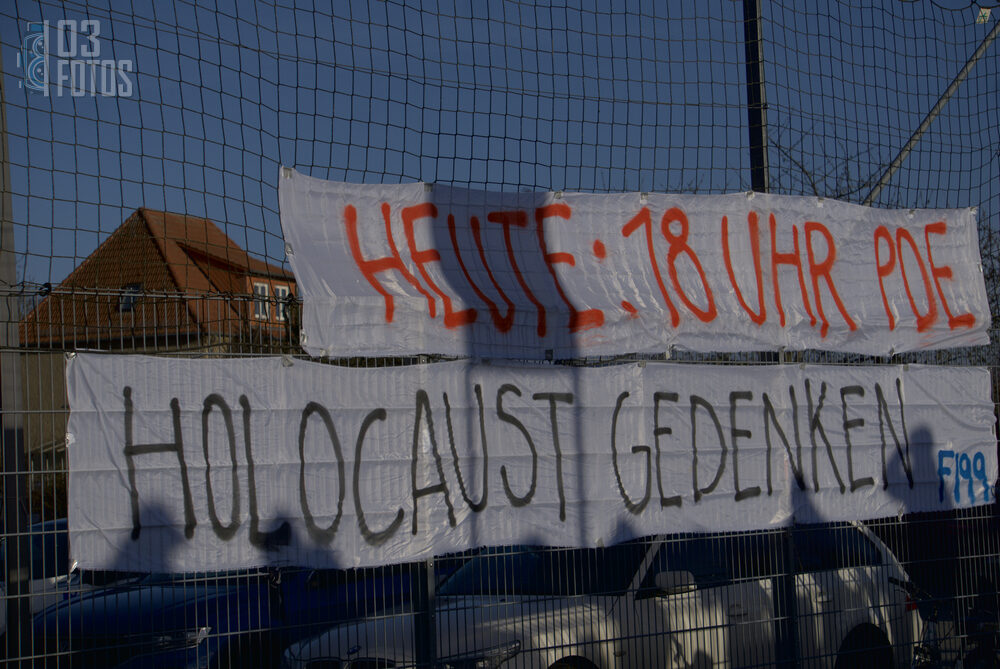 03
FOTOS
HEUTE: 18 UHR PDE
HOLOCAUST GEDENKEN
F199